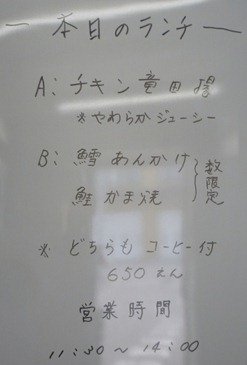 本日のランチ
A: チキン竜田揚
※やわらかジューシー
B: 鱈あんかけ
鮭かま焼
数限定
※ どちらも コーヒー付
650えん
営業時間
11:30〜14:00